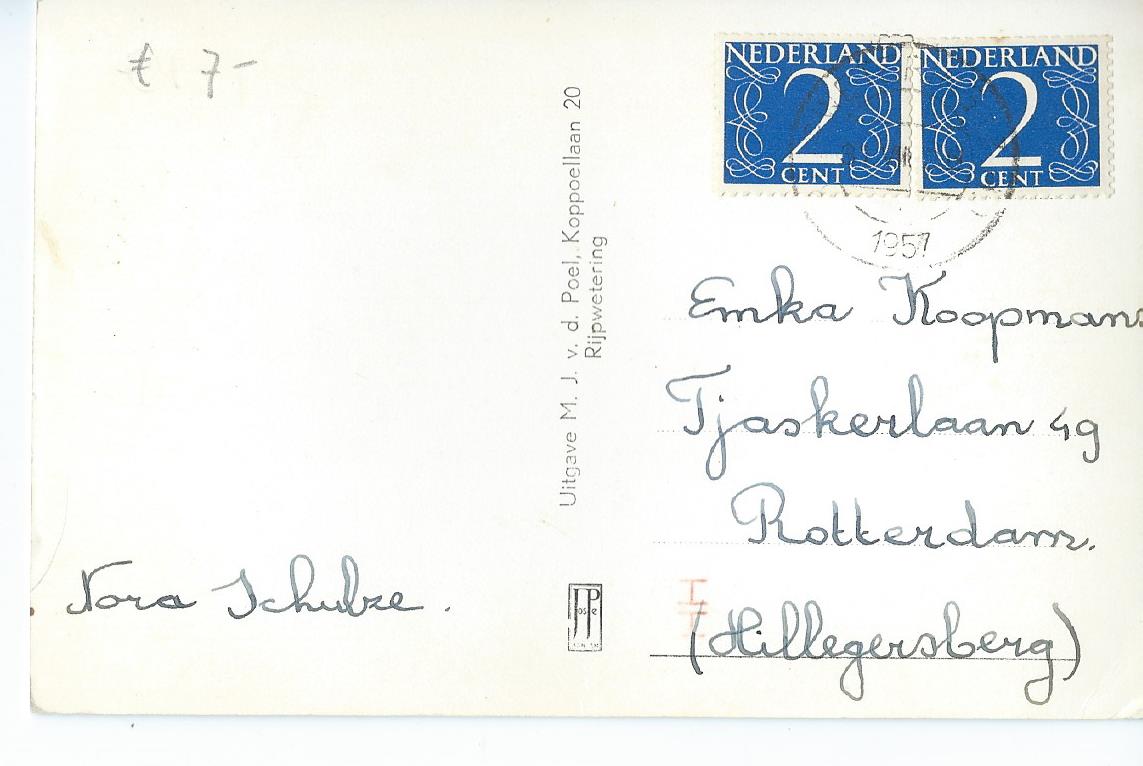 € 7-
NEDERLAND
2
CENT
NEDERLAND
2
CENT
1957
Uitgave M. J. v. d. Poel, Koppoellaan 20
Rijpwetering
Emka Koopmans
Tjaskerlaan 49
Rotterdam.
(Hillegersberg)
Nora Schulze.